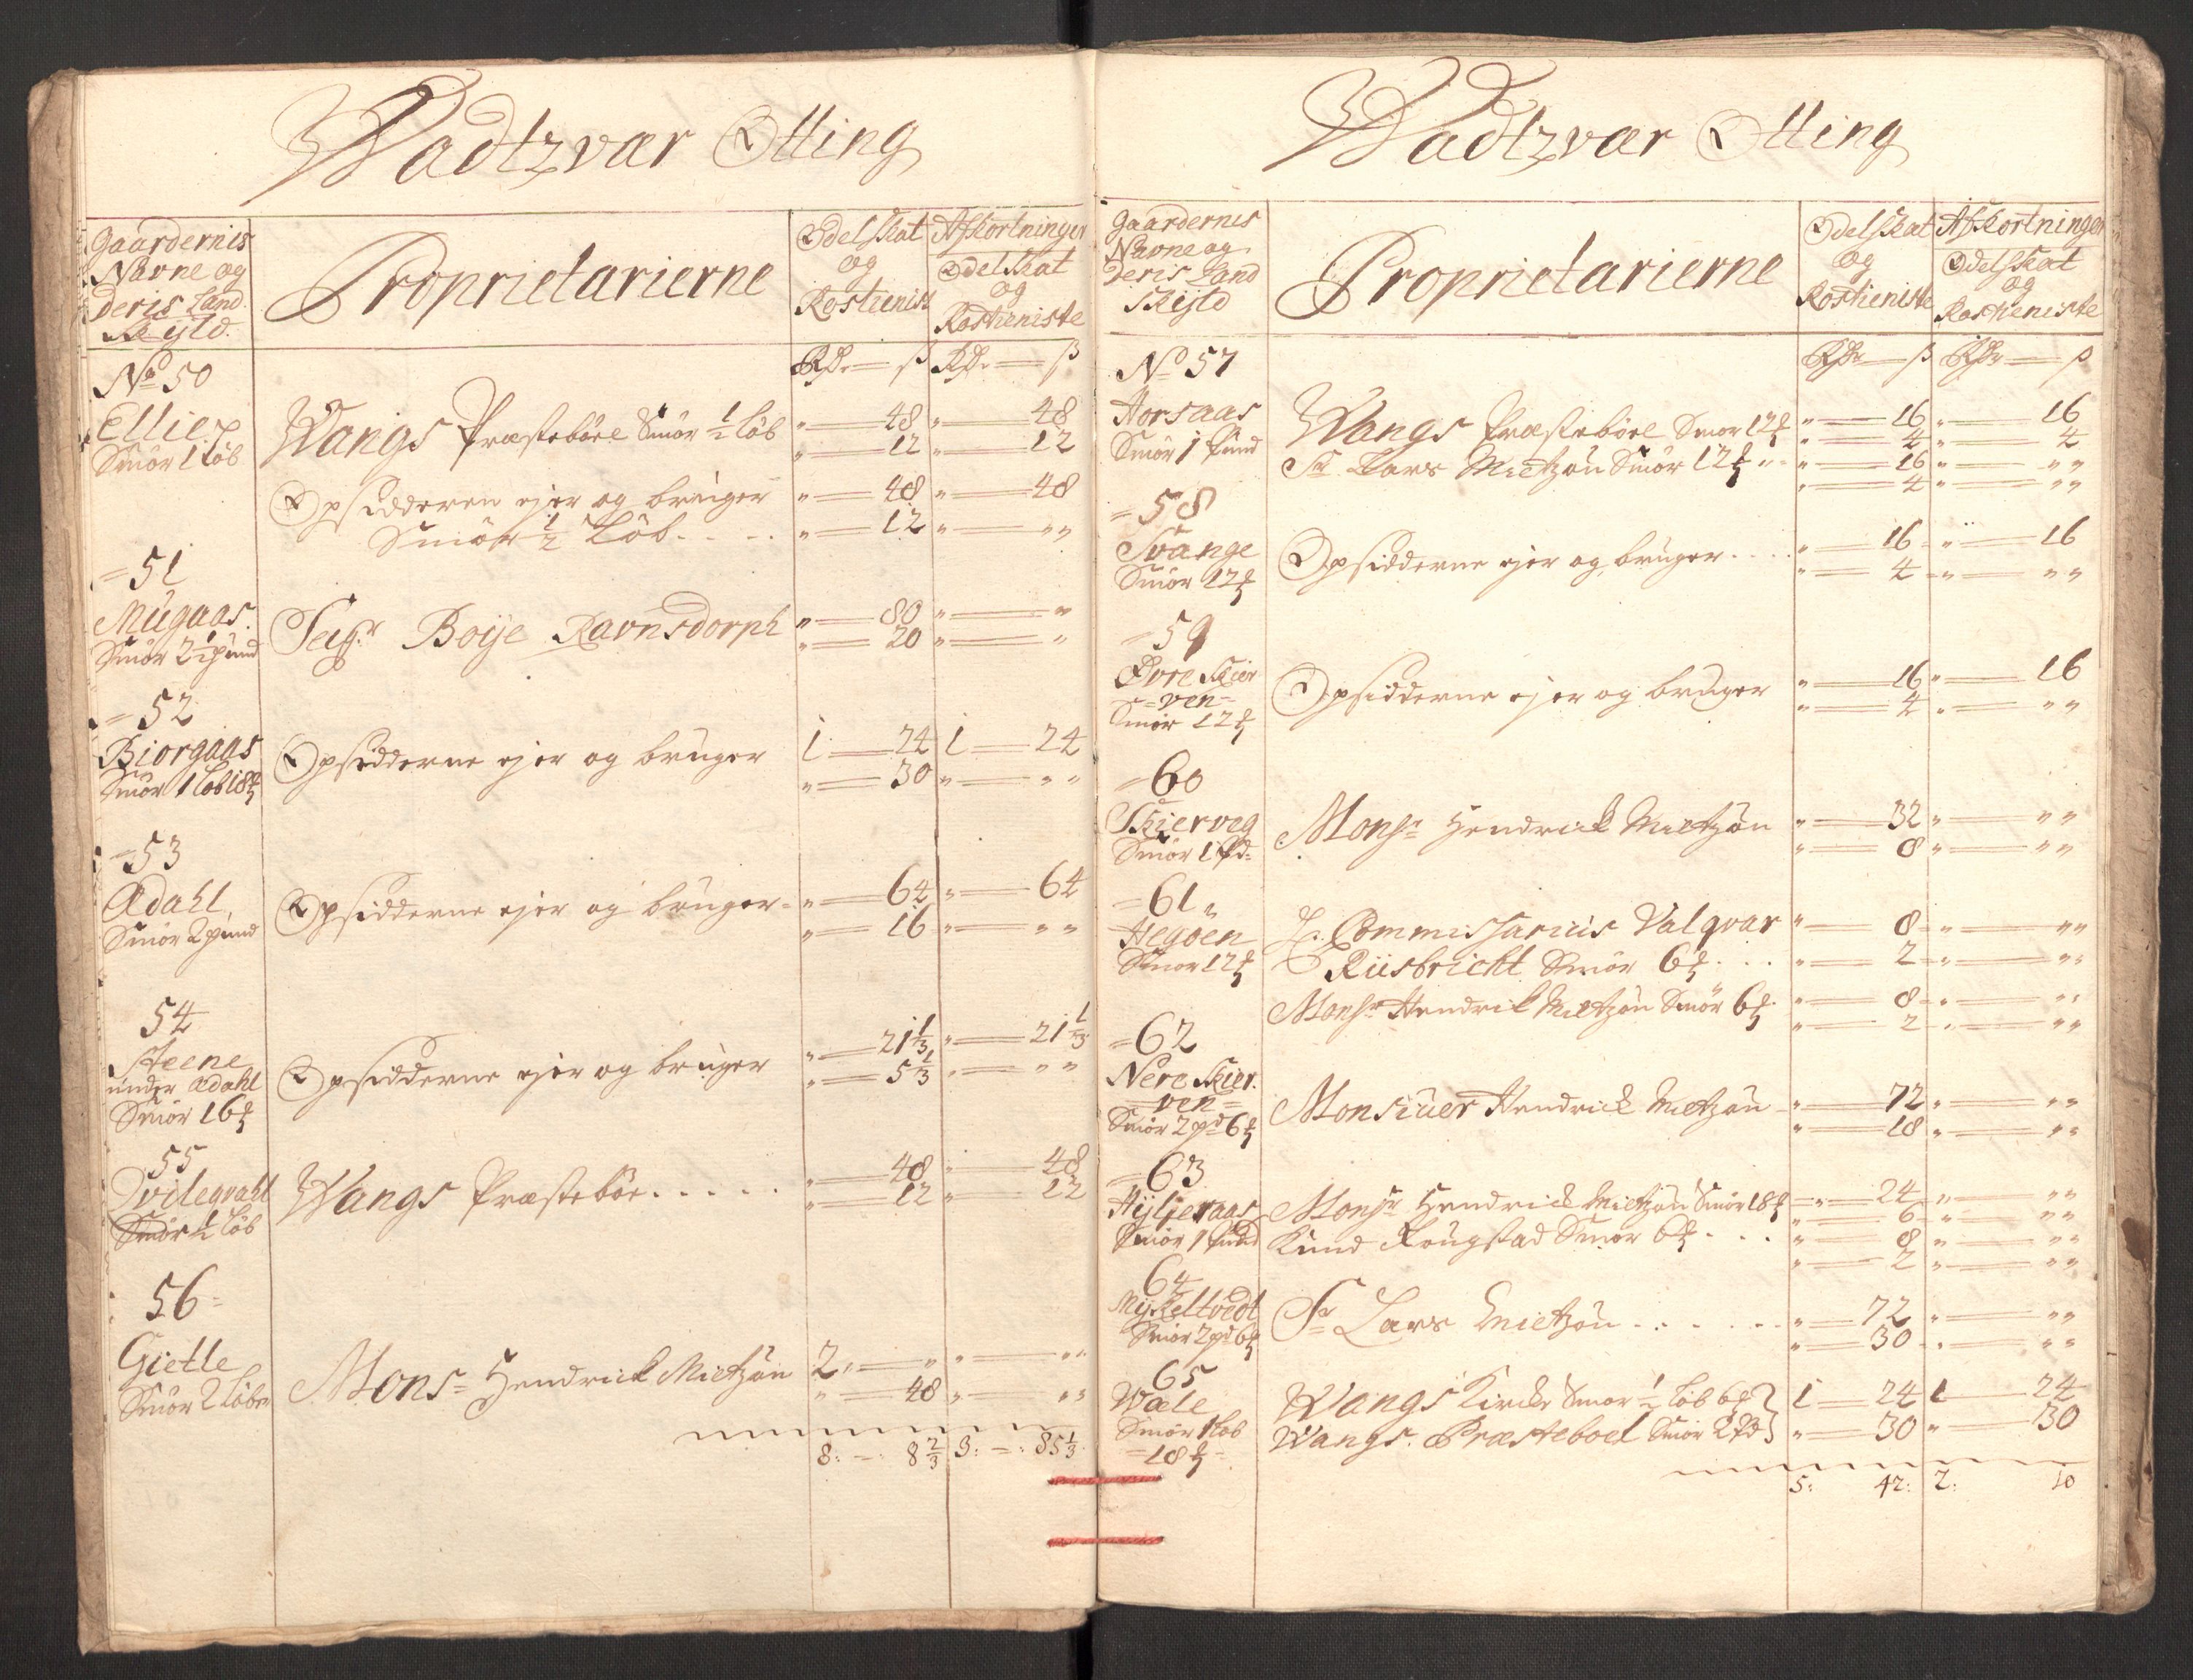 Wadtzvær Otting
Gaardernis Navne og Deris Land Skyld.
Proprietarierne
Odelskat og Rostieniste
Afkortninger Odelskat og Rostieniste
Rdr — ß Rdr — ß
No 50
Ellie
Smör 1 Löb
Wangs Præsteböel Smör ½ Löb " — 48 " — 48
" — 12 " — 12
Opsidderen ejer og bruger " — 48 " — 48
Smör ½ Löb - - - " — 12 " — " "
= 51
Mugaas.
Smör 2½ pund
Seigr Boÿe Ravnsdorph " — 80 " — "
" — 20 " — "
= 52
Biorgaas
Smör 1 Löb 18
Opsidderne ejer og bruger 1 — 24 1 — 24
" — 30 " — " "
= 53
Ædahl
Smör 2 pund
Opsidderne ejer og bruger - " — 64 " — 64
" — 16 " — " "
54
Steene
under Ædahl
Smör 16
Opsidderne ejer og bruger " — 21⅓ " — 21⅓
" — 5⅓ " — " "
55
Tvilegvahl
Smör ½ Löb
Wangs Præsteböe . . . . . " — 48 " — 48
" — 12 " — 12
56 =
Gietle
Smör 2 Löber
Monsr Hendrick Mieltzön 2 " — " " — " "
" — 48 " — " "
8: — : 8⅔ 3: — : 85⅓
Wadtzvær Otting
Gaardernes Navne og Deris Land Skyld
Proprietarierne
Odelskat og Rostieniste
Afkortninger Odelskat og Rostieniste
Rdr — ß Rdr — ß
No 57
Horsaas
Smör 1 pund
Wangs Præsteböel Smör 12 " — 16 " — 16
" — 4 " — 4
Sr Lars Mieltzön Smör 12 " — 16 " — " "
" — 4 " — " "
= 58
Tvänge
Smör 12
Opsidderne ejer og bruger . . . . " — 16 " — 16
" — 4 " — " "
= 59
Øvre Skier
= ven =
Smör 12
Opsidderne ejer og bruger " — 16 " — 16
" — 4 " — " "
= 60
Skierveg
Smör 1 Pd
Monsr Hendrick Mieltzön " — 32 " — " "
" — 8 " — " "
= 61 "
Hegoen
Smör 12
H. Commissarius Valqvar " — 8 " — " "
Riisbricht Smör 6 . . . " — 2 " — " "
Monsr Hendrik Mieltzön Smör 6 " — 8 " — " "
" — 2 " — " "
= 62
Nere Skier.
= ven =
Smör 2 pd 6
Monsiuer Hendrick Mieltzön " — 72 " — " "
" — 18 " — " "
= 63
Hÿljeraas
Smör 1 pund
Monsr Hendrick Mieltzön Smör 18 " — 24 " — " "
" — 6 " — " "
Knud Rongstad Smör 6 . . . " — 8 " — " "
" — 2 " — " "
64
Mÿkeltvedt
Smör 2 pd 6
Sr Lars Mieltzön . . . . . . " — 72 " — " "
" — 30 " — " "
65
Wæle
Smör 1 Löb
= 18 =
Wangs Kircke Smör ½ Löb 6 } 1 — 24 1 — 24
Wangs. Præsteboel Smör 2 Pd } " — 30 " — 30
5: 42: 2: 10